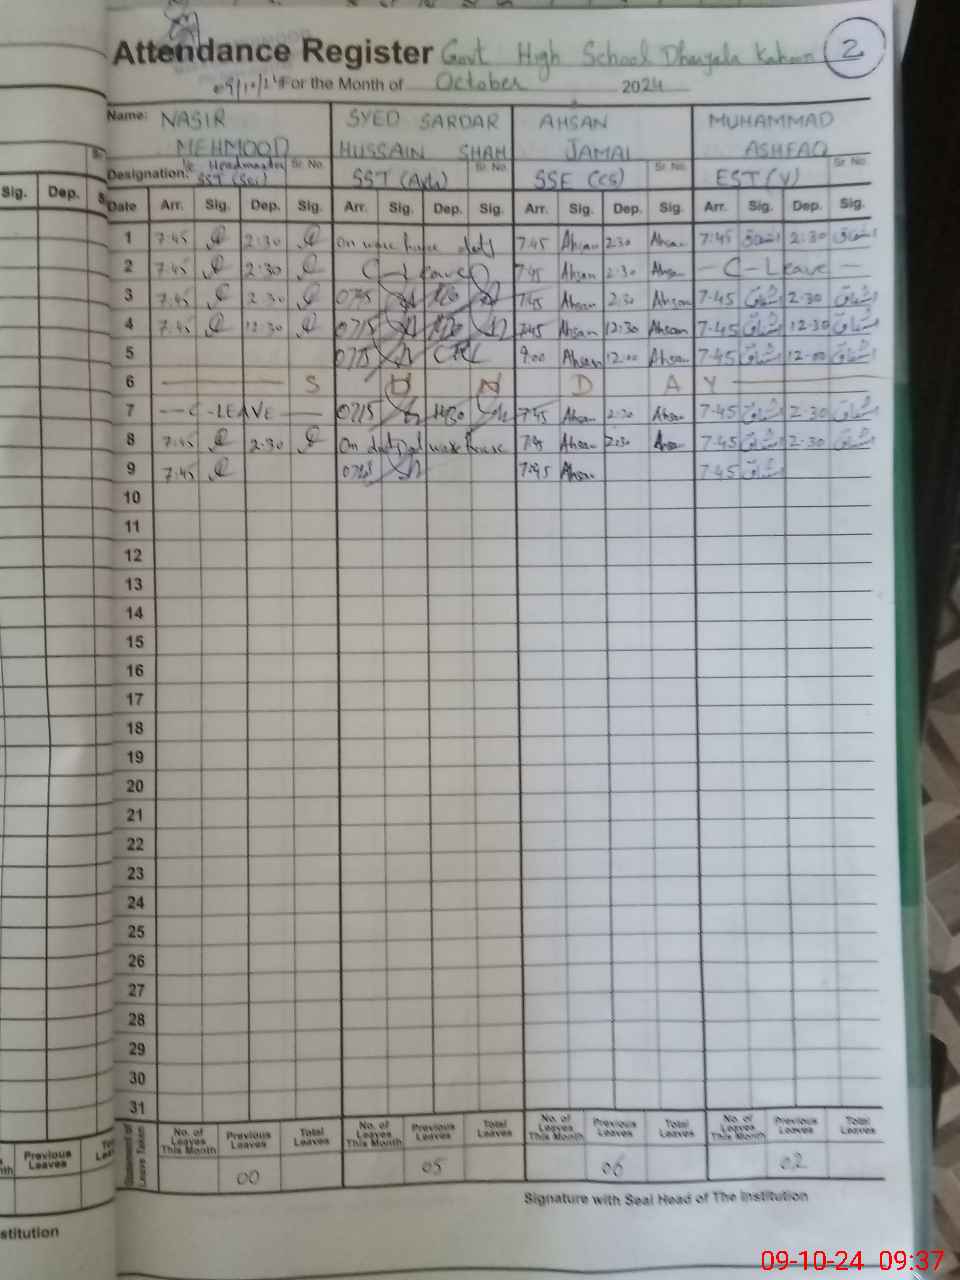 Attendance Register Govt High School Dhuryala Kahoon 2
09/10/24 For the Month of October 2024
Name: NASIR MEHMOOD SYED SARDAR HUSSAIN SHAH AHSAN JAMAL MUHAMMAD ASHFAQ
Designation: I/c Headmaster SST (Sci) Sr. No. SST (Arts) Sr. No. SSE (CS) Sr. No. EST (V) Sr. No.
Sig. Dep. Date Arr. Sig. Dep. Sig. Arr. Sig. Dep. Sig. Arr. Sig. Dep. Sig. Arr. Sig. Dep. Sig.
1 7:45 2:30 On 7:45 Ahsan 2:30 Ahsan 7:45 اشفاق 2:30 اشفاق
2 7:45 2:30 C-Leave 7:45 Ahsan 2:30 Ahsan - C-Leave -
3 7:45 2:30 0715 7:45 Ahsan 2:30 Ahsan 7-45 اشفاق 2:30 اشفاق
4 7:45 12:30 0715 7:45 Ahsan 12:30 Ahsan 7-45 اشفاق 12:30 اشفاق
5 0715 9:00 Ahsan 12:00 Ahsan 7-45 اشفاق 12-00 اشفاق
6 S U N D A Y
7 - C-LEAVE - 0715 1430 7:45 Ahsan 2:30 Ahsan 7-45 اشفاق 2:30 اشفاق
8 7:45 2:30 On 7:45 Ahsan 2:30 Ahsan 7-45 اشفاق 2:30 اشفاق
9 7:45 7:45 Ahsan 7-45 اشفاق
10
11
12
13
14
15
16
17
18
19
20
21
22
23
24
25
26
27
28
29
30
31
Previous Leaves Statement of Leave Taken No. of Leaves This Month Previous Leaves Total Leaves No. of Leaves This Month Previous Leaves Total Leaves No. of Leaves This Month Previous Leaves Total Leaves No. of Leaves This Month Previous Leaves Total Leaves
00 05 06 02
Signature with Seal Head of The Institution
stitution
09-10-24 09:37